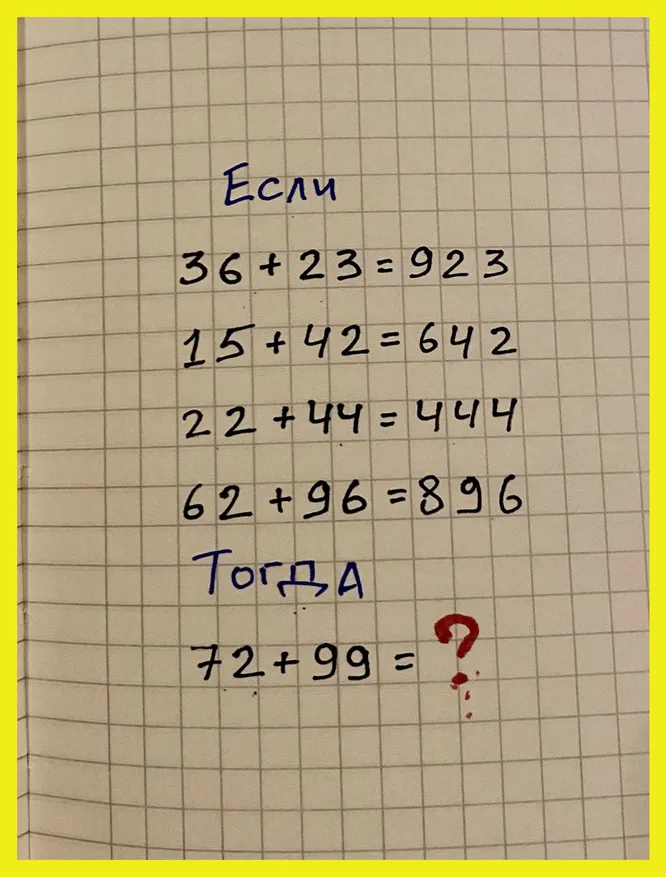 Если
36 + 23 = 923
15 + 42 = 642
22 + 44 = 444
62 + 96 = 896
Тогда
72 + 99 = ?